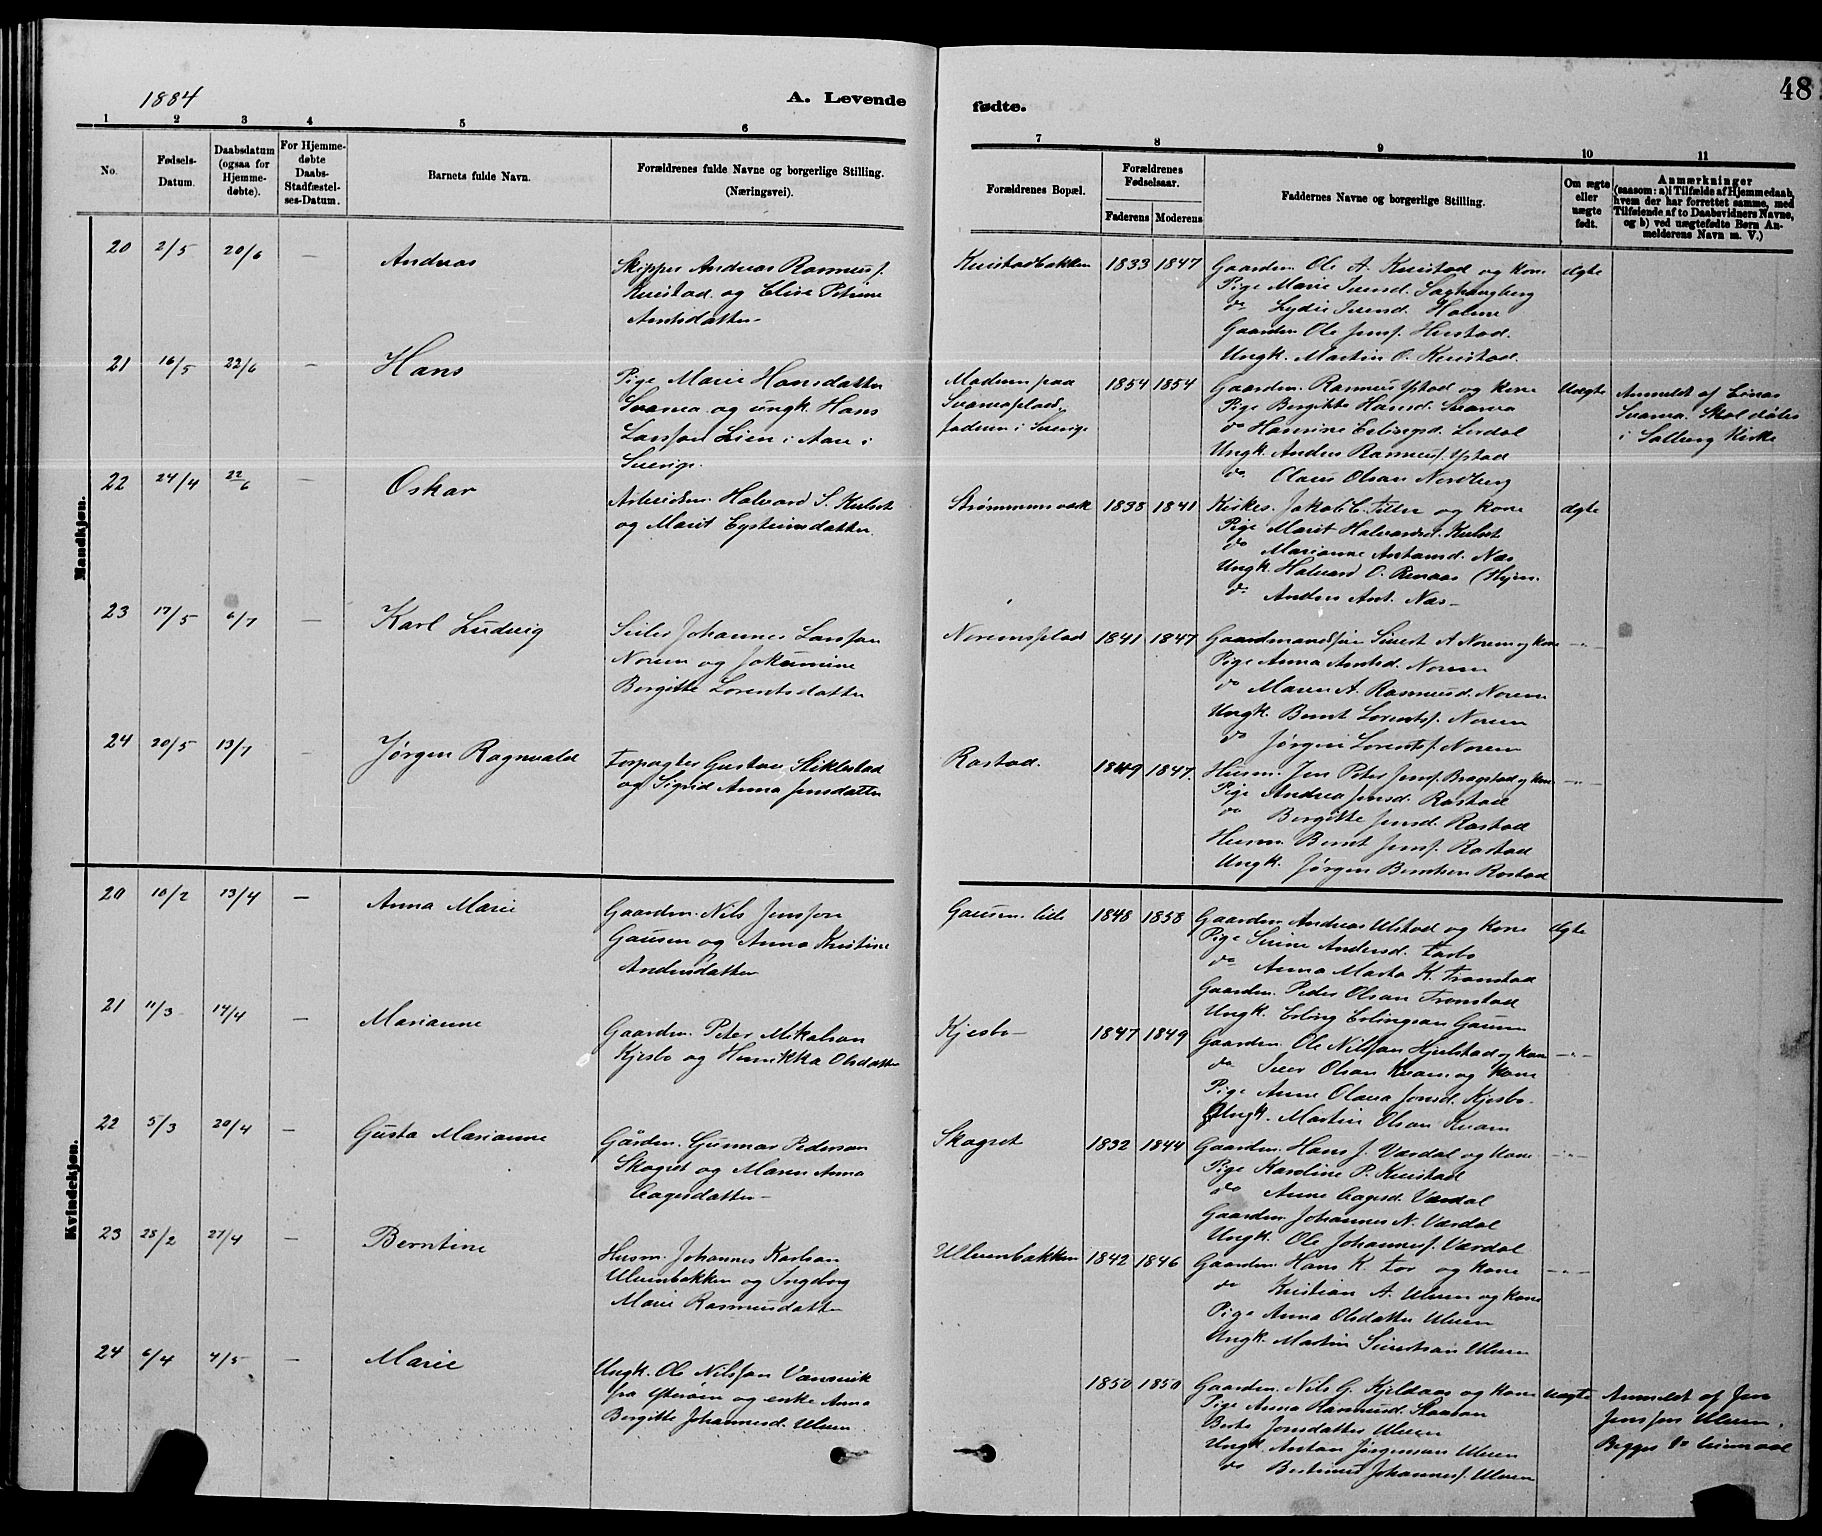 1884
A. Levende
fødte.
48
1
2
3
4
5
6
7
8
9
10
11
No.
Fødsels-
Datum.
Daabsdatum
(ogsaa for
Hjemme-
døbte).
For Hjemme-
døbte
Daabs-
Stadfæstel-
ses-Datum.
Barnets fulde Navn.
Forældrenes fulde Navne og borgerlige Stilling.
(Næringsvei).
Forældrenes Bopæl.
Forældrenes
Fødselsaar.
Faderens
Moderens
Faddernes Navne og borgerlige Stilling.
Om ægte
eller
uægte
født.
Anmærkninger
(saasom: a) i Tilfælde af Hjemmedaab,
hvem der har forrettet samme, med
Tilføiende af to Daabsvidners Navne,
og b) ved uægtefødte Børn An-
melderens Navn m. V.)
Mandkjøn.
20 2/5 20/6 — Andreas
Skipper Andreas Rasmus.
og Elise Petrine
Arntsdatter
1833 1847
Gaardm. Ole A. og kone
Pige Marie Iversd.
do Lydie Iversd. Holme
Gaardm. Ole Jensf.
Ungk. Martin O.
ægte
21 16/5 22/6 — Hans
Pige Marie Hansdatter
og ungk. Hans
Larsson Lien i Aare i
Sverige.
Moderen paa
faderen i Sverige
1854 1854
Gaardm. Rasmus Ystad og kone
Pige Bergitte Hansd.
do Hansine Erlingsd. Lerdal
Ungk. Anders Rasmusf. Ystad
do Claus Olsen Nordberg
Uægte
Anmeldt af Einar
Skal døbes
i Salberg Kirke
22 24/4 22/6 — Oskar
Arbeidsm. Halvard S.
og Marit Eysteinsdatter.
1838 1841
Kirkes. Jakob C. og kone
Pige Marit Halvardsd.
do Marianne Antonsd. Næs
Ungk. Halvard O. Renaas
do Andreas Ant. Næs
ægte
23 17/5 6/7 — Karl Ludvig
Seiler Johannes Larsson
Norem og Jokumine
Bergitte Lorentsdatter
Noremsplad
1841 1847
Gaardmand Sivert A Norem og kone
Pige Anna Arntsd. Norem
do Maren A. Rasmusd. Norem
Ungk. Bernt Lorentsf. Norem
do Jørgen Lorentsf. Norem
— " —
24 20/5 13/7 — Jørgen Ragnvald
Forpagter Gustav Stiklestad
og Sigrid Anna Jensdatter
Rostad.
1849 1847.
Husm. Jens Peter Jensf. Bragstad og kone
Pige Andrea Jensd. Rostad
do Bergitte Jensd. Rostad
Husm. Bernt Jensf. Rostad
Ungk. Jørgen Berntsen Rostad
— " —
Kvindekjøn.
20 10/2 13/4 — Anna Marie
Gaardm. Nils Jensson
Gausen og Anna Kristine
Andersdatter
Gausen lille
1848 1858
Gaardm. Andreas Ulstad og kone
Pige Sirine Andersd.
do Anna Marta K. Tronstad
Gaardm. Peder Olsen Tronstad
Ungk. Erling Erlingsen Gausen
ægte
21 11/3 14/4 — Marianne
Gaardm. Peter Mikalsen
Kjesbo og Henrikka Olsdatter
Kjesbo
1847 1849
Gaardm. Ole Nilsson Hjelstad og kone
do Iver Olsen Kvam og kone
Pige Anne Olava Jonsd. Kjesbo
Ungk. Martin Olsen Kvam
— " —
22 5/3 20/4 — Gusta Marianne
Gårdm. Gunnar Pedersen
Skogset og Maren Anna
Aagesdatter
Skogset
1832 1844
Gaardm. Hans J. Værdal og kone
Pige Karoline P.
do Anne Aagesd. Værdal
Gaardm. Johannes N. Værdal
Ungk. Ole Johannesf. Værdal
— " —
23 28/2 27/4 — Berntine
Husm. Johannes Karlsen
Ulvenbakken og Ingeborg
Marie Rasmusdatter
Ulvenbakken
1842 1846
Gaardm. Hans K. og kone
do Kristian A. Ulven og kone
Pige Anna Olsdatter Ulven
Ungk. Martin Sivertsen Ulven
— " —
24 6/4 4/5 — Marie
Ungk. Ole Nilsson Vannvik
fra Ytterøen og enke Anna
Bergitte Johannesd. Ulven
1850 1850
Gaardm. Nils G. Kjeldaas og kone
Pige Anna Rasmusd.
Berte Jonsdatter Ulven
Ungk. Anton Jørgensen Ulven
do Bertinus Johannesf. Ulven
Uægte
Anmeldt af Jens
Jensson Ulven.
Begges 2